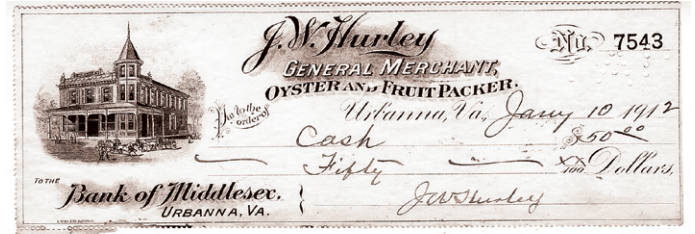 J. W. Hurley No. 7543
GENERAL MERCHANT,
OYSTER AND FRUIT PACKER.
Urbanna, Va, Jany 10 1912
Pay to the order of Cash $50 00
Fifty XX/100 Dollars,
TO THE
Bank of Middlesex.
URBANNA, VA.
J W Hurley